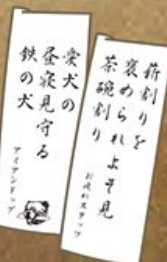 薪割りを
褒められよそ見
茶碗割り
お疲れステップ
愛犬の
昼寝見守る
鉄の犬
アイアンドッグ